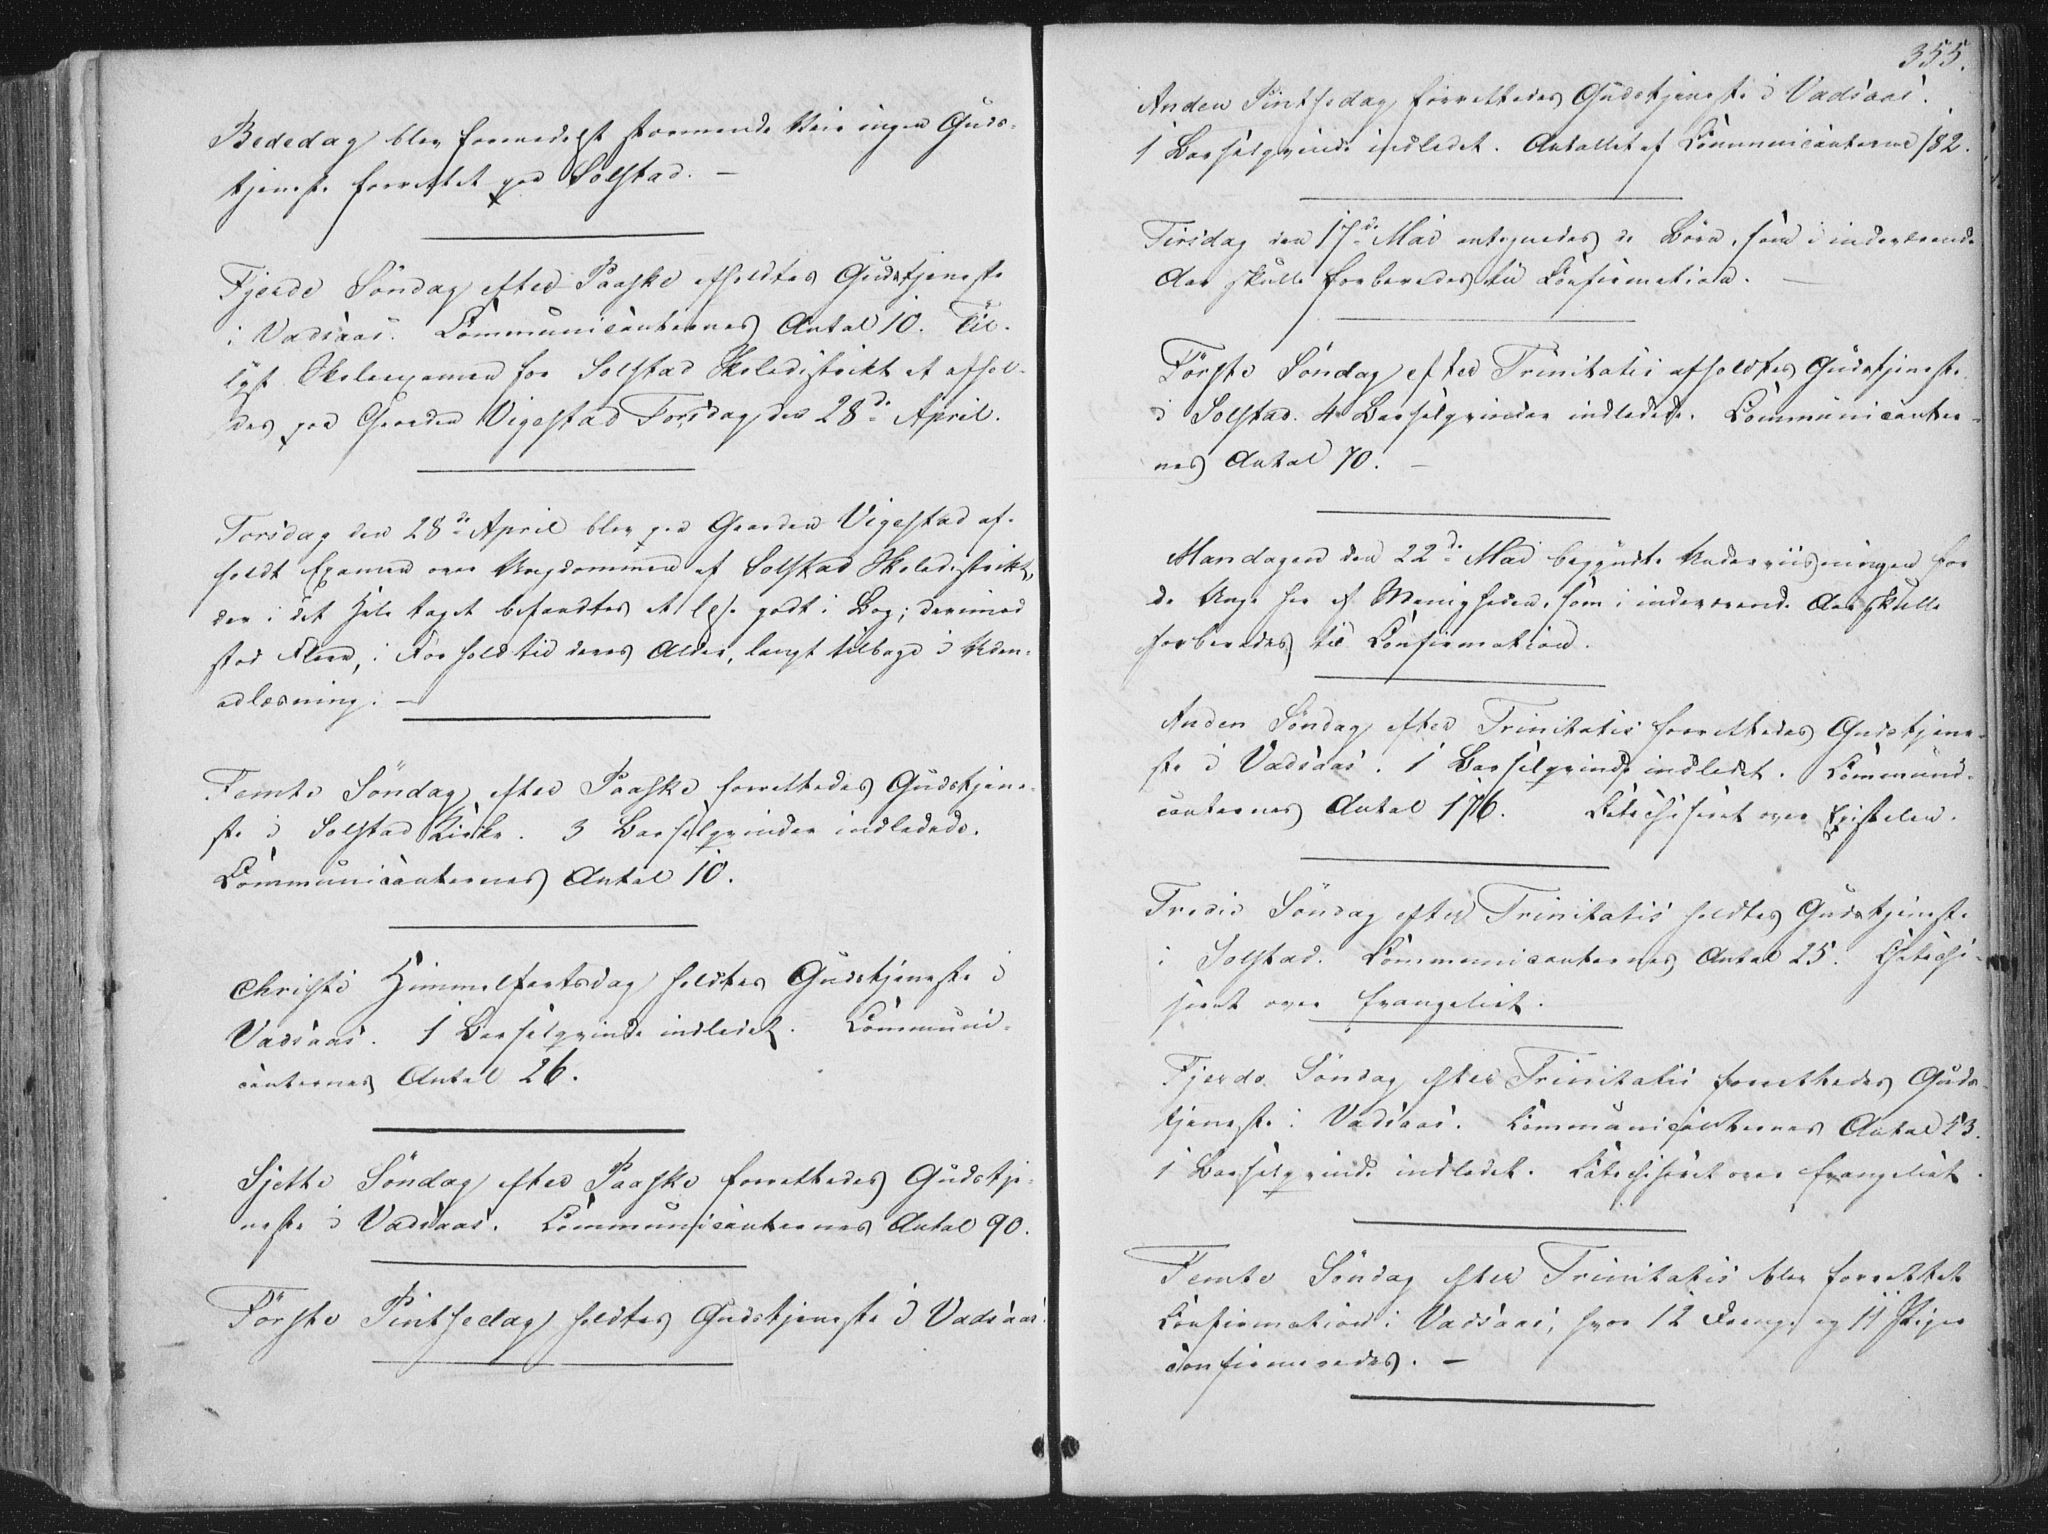 Bededag blev formedelst stormende Veir ingen Guds-
tjeneste forrettet paa Solstad. —
Fjerde Søndag efter Paaske afholdtes Gudstjeneste
i Vadsaas. Communicanternes Antal 10. Til-
lyst Skoleexamen for Solstad Skoledistrikt at afhol-
des paa Gaarden Vigestad Torsdag den 28de April.
Torsdag den 28de April blev paa Gaarden Vigestad af-
holdt Examen over Ungdommen af Solstad Skoledistrikt,
der i det Hele taget befandtes at læse godt i Bog; derimod
stod Flere, i Forhold til deres Alder, langt tilbage i Uden-
adlæsning. —
Femte Søndag efter Paaske forrettedes Gudstjene-
ste i Solstad Kirke. 3 Barselqvinder indledede.
Communicanternes Antal 10.
Christi Himmelfartsdag holdtes Gudstjeneste i
Vadsaas. 1 Barselqvinde indledet. Communi-
canternes Antal 26.
Sjette Søndag efter Paaske forrettedes Gudstje-
neste i Vadsaas. Communicanternes Antal 90.
Første Pintsedag holdtes Gudstjeneste i Vadsaas.
355.
Anden Pintsedag forrettedes Gudstjeneste i Vadsaas.
1 Barselqvinde indledet. Antallet af Communicanterne 182.
Tirsdag den 17de Mai antegnedes de Børn, som i indeværende
Aar skulle forberedes til Confirmation. —
Første Søndag efter Trinitatis afholdtes Gudstjeneste
i Solstad. 4 Barselqvinder indledede. Communicanter-
nes Antal 70. —
Mandagen den 22de Mai begyndte Underviisningen for
de Unge her af Menigheden, som i indeværende Aar skulle
forberedes til Confirmation.
Anden Søndag efter Trinitatis forrettedes Gudstjene-
ste i Vadsaas. 1 Barselqvinde indledet. Communi-
canternes Antal 176. Catechiseret over Epistelen.
Tredie Søndag efter Trinitatis holdtes Gudstjeneste
i Solstad. Communicanternes Antal 25. Catechi-
seret over Evangeliet.
Fjerde Søndag efter Trinitatis forrettedes Guds-
tjeneste i Vadsaas. Communicanternes Antal 53.
1 Barselqvinde indledet. Catechiseret over Evangeliet.
Femte Søndag efter Trinitatis blev forrettet
Confirmation i Vadsaas, hvor 12 Drenge og 11 Piger
confirmeredes. —